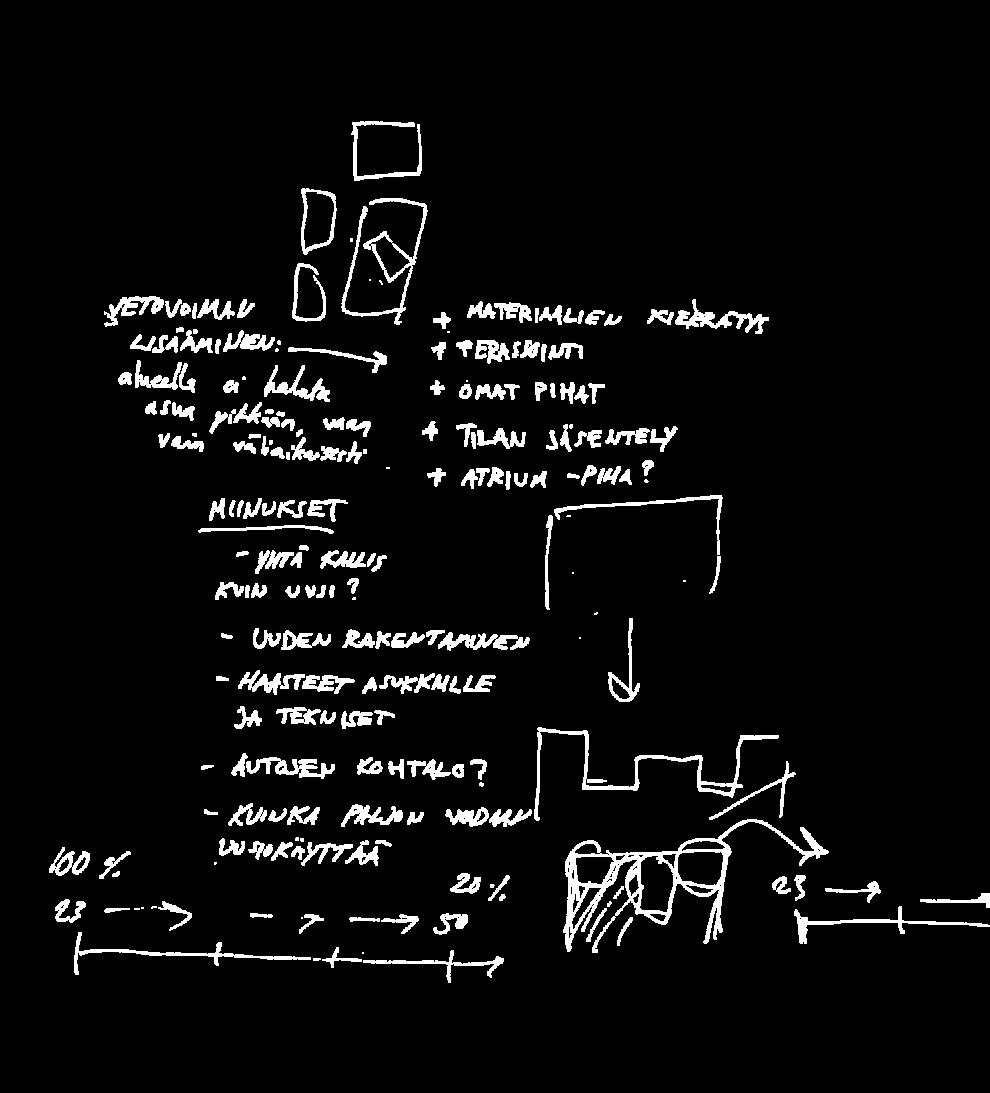 VETOVOIMAN
LISÄÄMINEN:
alueella ei haluta
asua pitkään, vaan
vain väliaikaisesti
+ MATERIAALIEN KIERRÄTYS
+ TERASSOINTI
+ OMAT PIHAT
+ TILAN JÄSENTELY
+ ATRIUM -PIHA?
MIINUKSET
- YHTÄ KALLIS
KUIN UUSI?
- UUDEN RAKENTAMINEN
- HAASTEET ASUKKAILLE
JA TEKNISET
- AUTOJEN KOHTALO?
- KUINKA PALJON VOIDAAN
UUSIOKÄYTTÄÄ
100 %
20 %
23
50
23